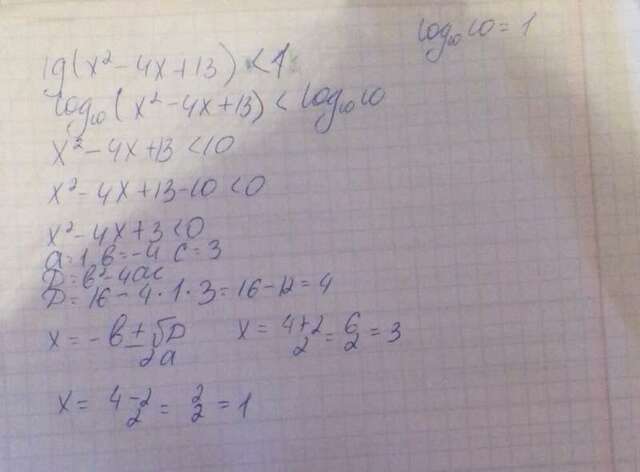 log₁₀10 = 1
lg(x² - 4x + 13) < 1
log₁₀(x² - 4x + 13) < log₁₀10
x² - 4x + 13 < 10
x² - 4x + 13 - 10 < 0
x² - 4x + 3 < 0
a = 1, в = -4 c = 3
D = в² - 4ac
D = 16 - 4 · 1 · 3 = 16 - 12 = 4
x = -в ± √D / 2a x = 4+2 / 2 = 6/2 = 3
x = 4-2 / 2 = 2/2 = 1